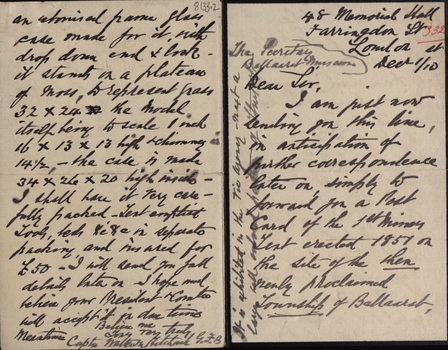 48 Memorial Hall
Farringdon St
London
Decr 1/10
The Secretary
Ballarat Museum
Dear Sir,
I am just now
sending you this line,
in anticipation of
further correspondence
later on simply to
forward you a Post
Card of the 1st Miners
Tent erected 1851 on
the site of the then
newly proclaimed
Township of Ballarat,
It is exhibited in the
8133-2
an atomised frame glass
case made for it with
drop down end & lock -
it stands on a plateau
of moss, to represent grass
32 x 24 the model
itself being to scale 1 inch
16 x 13 x 13 high & chimney
14 1/2, - the case is made
34 x 26 x 20 high inside
I shall have it very care-
fully packed - Tent
Tools, beds &c &c in separate
packing and insured for
£50 - I will send you full
details later on - I hope and
believe your President & Comtee
will accept it in due time
Meantime Believe me
Yours very truly